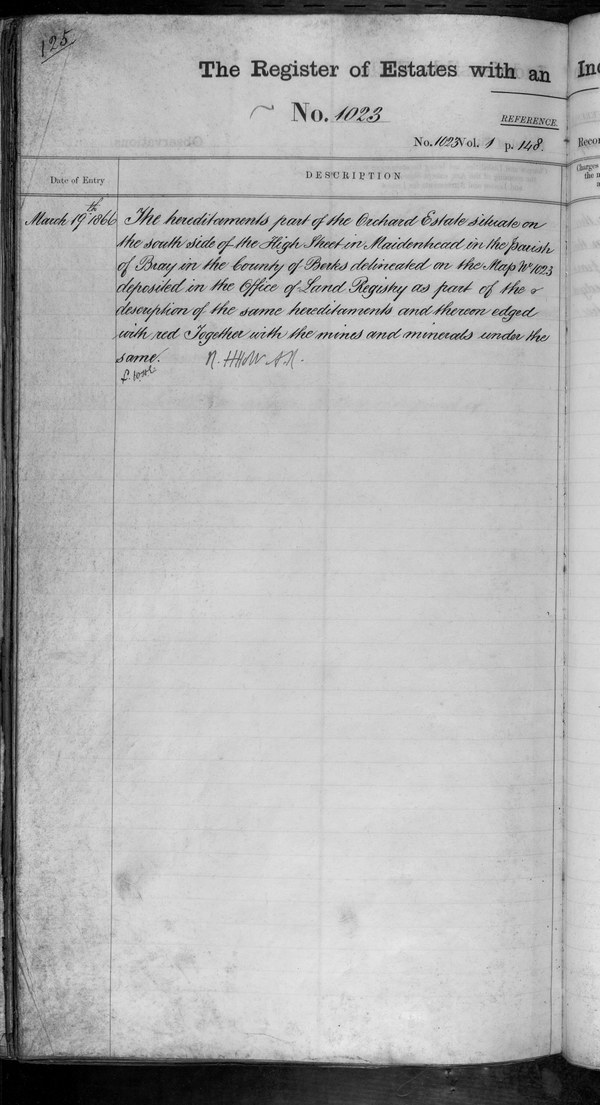 125
The Register of Estates with an
Ind
No. 1023
REFERENCE.
No. 1023 Vol. 1 p. 148.
Recor
Observations.
Charges
the
Date of Entry
DESCRIPTION
March 19th 1866 The hereditaments part of the Orchard Estate situate on
the south side of the High Street in Maidenhead in the Parish
of Bray in the County of Berks delineated on the Map No 1023
deposited in the Office of Land Registry as part of the
description of the same hereditaments and thereon edged
with red Together with the mines and minerals under the
same.